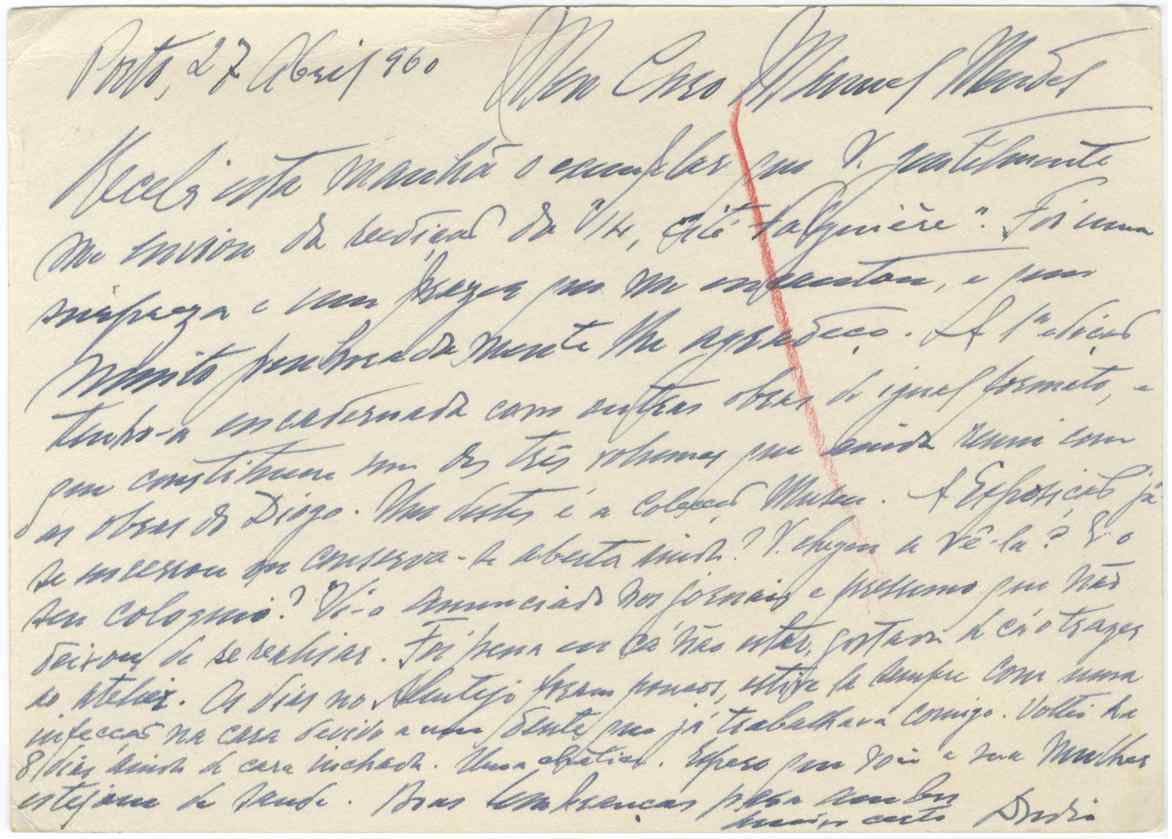 Porto, 27 Abril 960 Meu Caro Manuel Mendes
Recebi esta manhã o exemplar que V. gentilmente
me enviou da reedição da "14, Cité Falguière". Foi uma
surpreza e um prazer que me encantou, e que
muito penhoradamente lhe agradeço. A 1ª edição
tenho-a encadernada com outras obras de igual formato, e
que constituem um dos três volumes que ainda reuni com
as obras do Diogo. Um destes é a colecção Museu. A Exposição já
se encerrou ou conserva-se aberta ainda? V. chegou a vê-la? E o
seu coloquio? Vi-o anunciado nos jornais e presumo que não
deixou de se realisar. Foi pena eu cá não estar, gostava de cá o trazer
ao atelier. Os dias no Alentejo foram poucos, estive lá sempre com uma
infecção na cara devido a um dente que já trabalhava comigo. Voltei ha
8 dias ainda de cara inchada. Uma Espero que você e sua Mulher
estejam de saude. Boas lembranças para ambos
muito certo